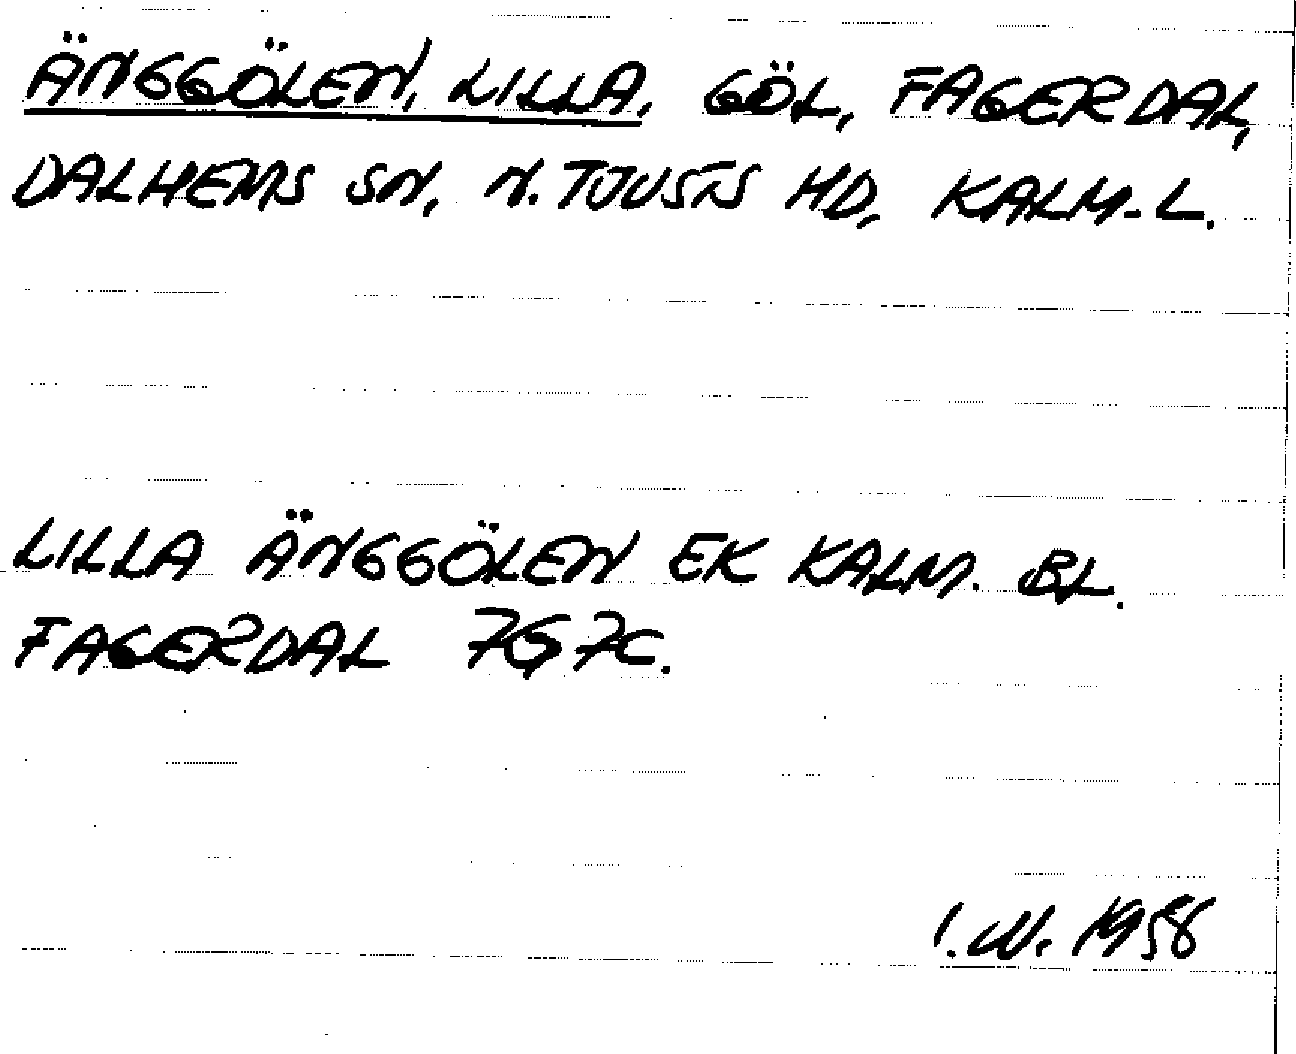 ÄNGGÖLEN, LILLA, GÖL, FAGERDAL,
DALHEMS SN, N. TJUSTS HD, KALM. L.
LILLA ÄNGGÖLEN EK KALM. BL.
FAGERDAL 7G7C.
I.W. 1958